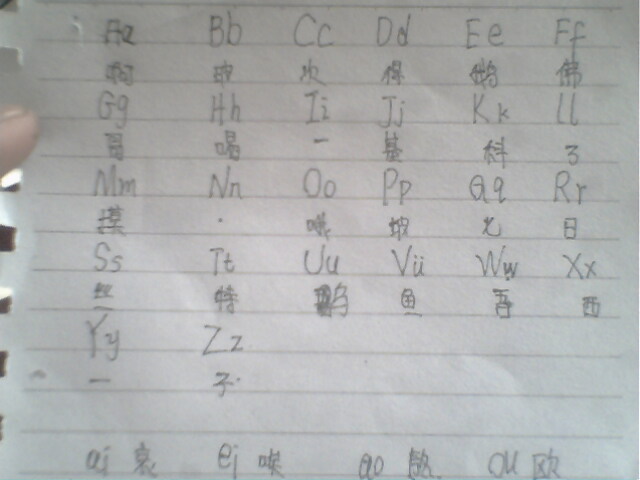 Aa Bb Cc Dd Ee Ff
啊 玻 次 得 鹅 佛
Gg Hh Ii Jj Kk Ll
哥 喝 一 基 科 了
Mm Nn Oo Pp Qq Rr
摸 噢 坡 七 日
Ss Tt Uu Vü Ww Xx
丝 特 乌 鱼 吾 西
Yy Zz
一 子
ai 哀 ei 唉 ao ou 欧